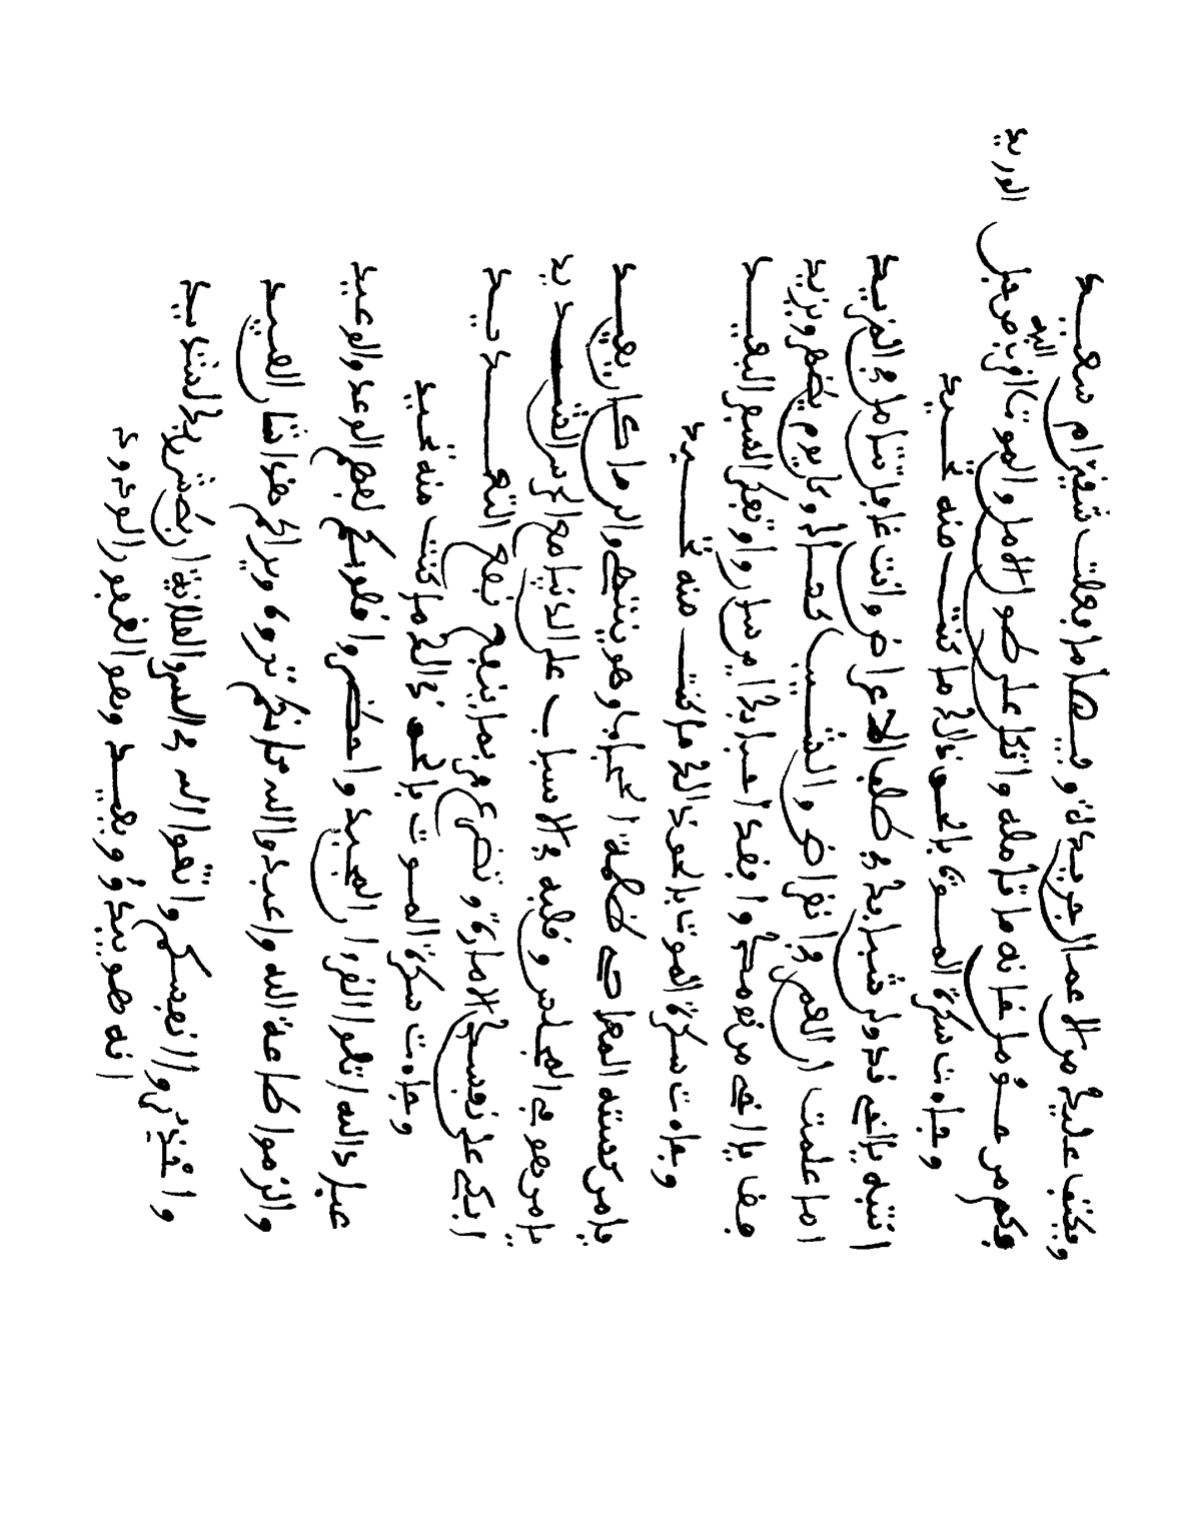 ويكتب عليك من الاعمال جريدة وفيها ما فعلت شقي ام سعيد
فكم من مؤمل خانه ما تامله واتكل على طول الامل والموت اقرب اليه من حبل الوريد
وجاءت سكرة الموت بالحق ذالك ما كنت منه تحيد
انتبه يا اخي قد ولى شبابك في طلب الاعراض وانت غافل تتامل في المزيد
اما علمت ان العمر في انقراض والشيب وكل يوم ينقص ويزيد
فق يا اخي من نومك وافقد احبابك اين ساروا وتفكر السفر البعيد
وجاءت سكرة الموت بالحق ذالك ما كنت منه تحيد
يا من كسته المعاصي ظلمة الحجاب وهو ينتهي والى ما كان يعيد
يا من هو في المجلس وقلبه في الاسباب على الدنيا مع الحرس الشديد
ابكي على نفسك الامارة وتضرع فربما ينفع نفع التعديد
وجاءت سكرة الموت بالحق ذالك ما كنت منه تحيد
عباد الله اتلوا القران المجيد واحضروا قلوبكم لفهم الوعد والوعيد
والزموا طاعة الله واعبدوا الله كانكم تروه ويراكم هو انشا العبيد
واحذروا انفسكم واتقوا الله في السر والعلانية ان بطش ربك لشديد
انه هو يبدئ ويعيد وهو الغفور الودود